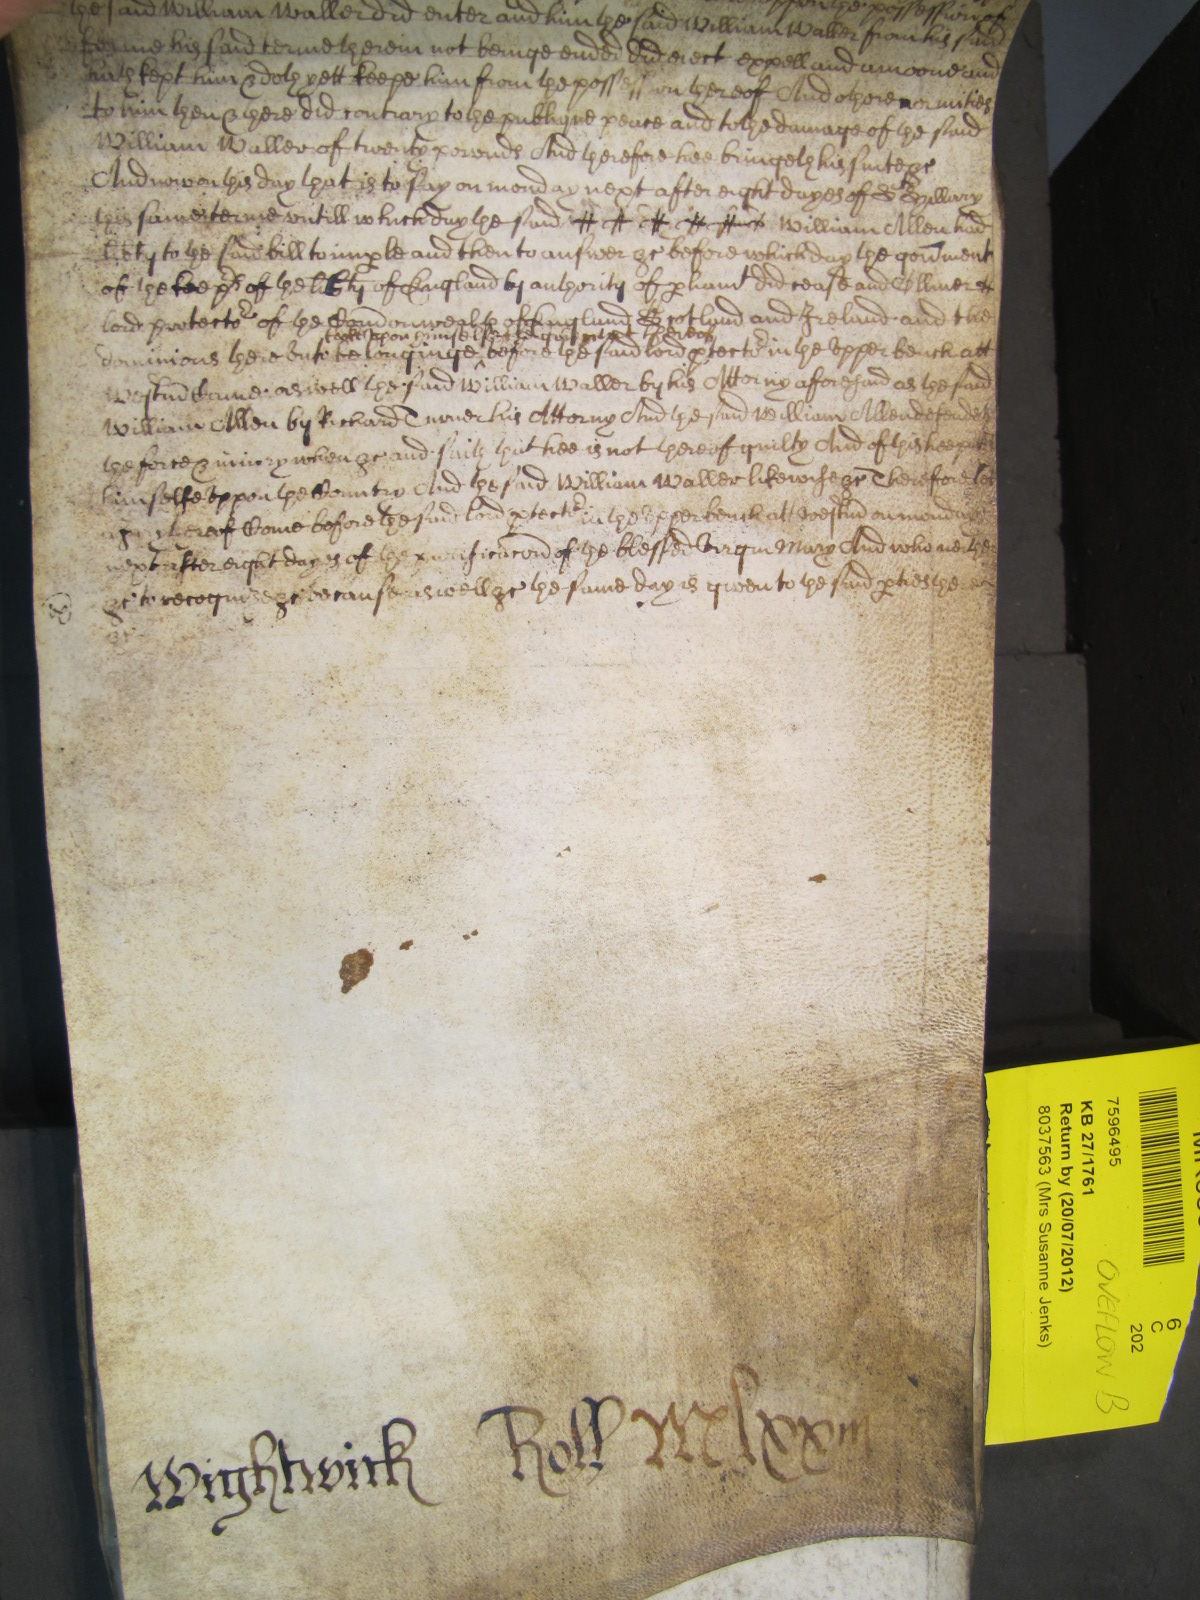 the said William Waller did enter and him the said William Waller from his said
ferme his said terme therein not beinge ended did eiect expell and amoove and
hath kept him & doth yett keepe him from the possession thereof And other enormities
to him then & there did contrary to the publique peace and to the damage of the said
William Waller of twenty pownds And therefore hee bringeth his suite &c
And now on this day that is to say on monday next after eight dayes of St Hillary
this same terme untill which day the said William Allen had
liBty to the said bill to imple and then to answer &c before which day the govment
of the keeps of the liBty of England by authority of pliamt did cease and Olliver
lord protector of the Comonwealth of England Scotland and Ireland and the
tooke upon himselfe the govment thereof
dominions thereunto belonginge before the said lord ptector in the Upper bench att
Westm came aswell the said William Waller by his Attorny aforesaid as the said
William Allen by Richard Turner his Attorny And the said William Allen defendeth
the force & iniury when &c and saith that hee is not thereof guilty And of this hee putteth
himselfe uppon the Country And the said William Waller likewise &c Therefore let
a Jury thereof Come before the said lord ptector in the Upper bench att Westm on monday
next after eight dayes of the purificacon of the blessed virgin Mary And who neither
&c to recognize &c because aswell &c the same day is given to the said pties there
&c
Wightwick Roll Mlxxiii
7596495
KB 27/1761
Return by (20/07/2012)
8037563 (Mrs Susanne Jenks)
OVEFLOW B
6
C
202